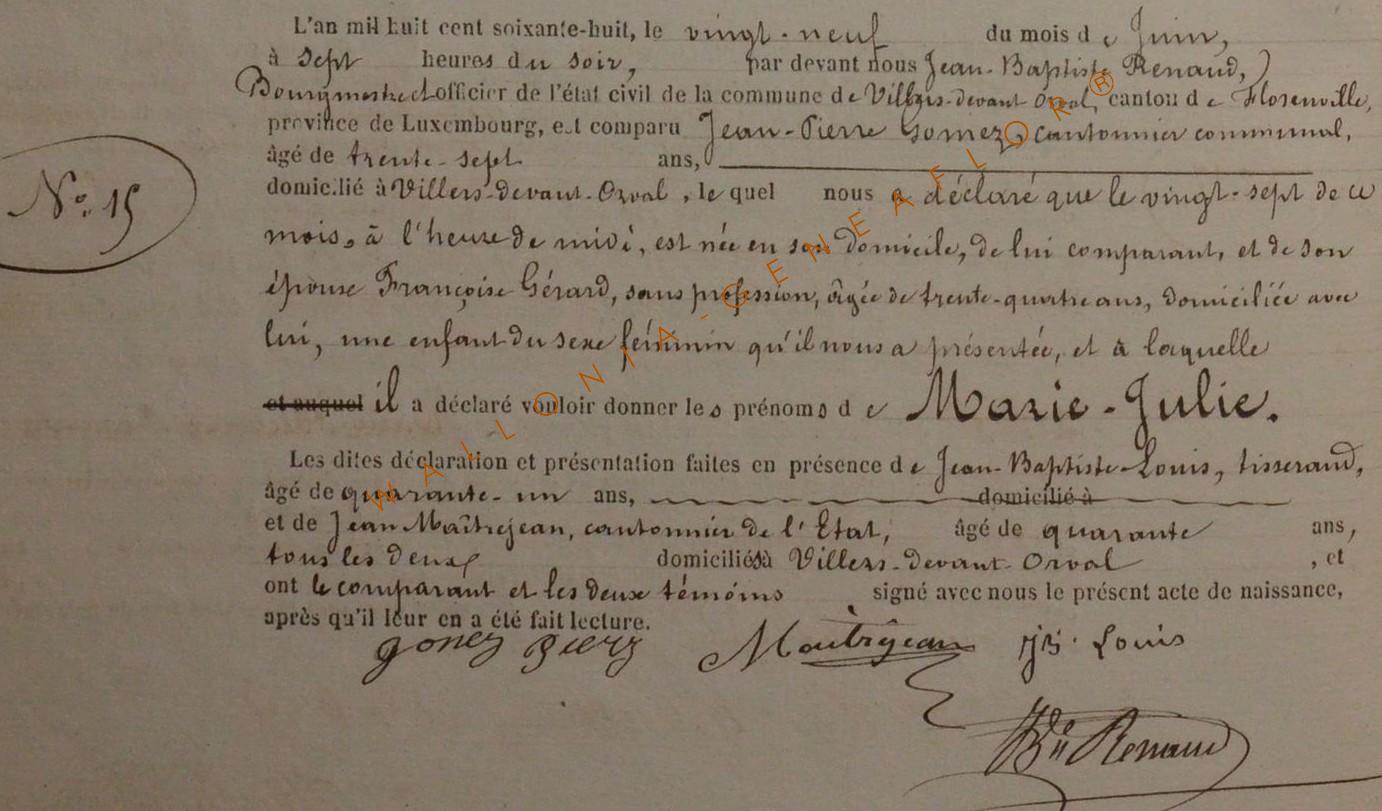 L'an mil huit cent soixante-huit, le vingt-neuf du mois de Juin,
à sept heures du soir, par devant nous Jean-Baptiste Renaud,
Bourgmestre et officier de l'état civil de la commune de Villers-devant-Orval, canton de Florenville,
province de Luxembourg, est comparu Jean-Pierre Gomez, cantonnier communal,
âgé de trente-sept ans,
domicilié à Villers-devant-Orval, le quel nous a déclaré que le vingt-sept de ce
mois, à l'heure de midi, est née en son domicile, de lui comparant, et de son
épouse Françoise Gérard, sans profession, âgée de trente-quatre ans, domiciliée avec
lui, une enfant du sexe féminin qu'il nous a présentée, et à laquelle
et auquel il a déclaré vouloir donner les prénoms de Marie-Julie.
Les dites déclaration et présentation faites en présence de Jean-Baptiste Louis, tisserand,
âgé de quarante-un ans, domicilié à
et de Jean Maîtrejean, cantonnier de l'Etat, âgé de quarante ans,
tous les deux domiciliés à Villers-devant-Orval, et
ont le comparant et les deux témoins signé avec nous le présent acte de naissance,
après qu'il leur en a été fait lecture.
N° 15
gomez pierz Maitrejean JB Louis
Bte Renaud
WALLONIA-GENEAFLOR®